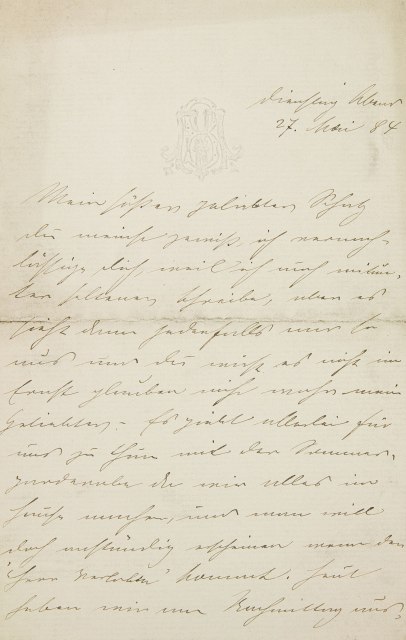 Dienstag Abend
27. Mai 84
Mein süßer, geliebter Schatz
du meinst gewiß, ich vernach-
lässige dich, weil ich noch mitun-
ter seltener schreibe, aber es
sieht denn jedenfalls nur so
aus und du wirst es nicht im
Ernst glauben nicht wahr mein
Geliebter. – Es giebt allerlei für
uns zu thun mit der Sommer-
garderobe die wir alles im
Hause machen, und man will
doch anständig erscheinen wenn der
"Herr Verlobte" kommt. Heut
haben wir am Nachmittag uns-